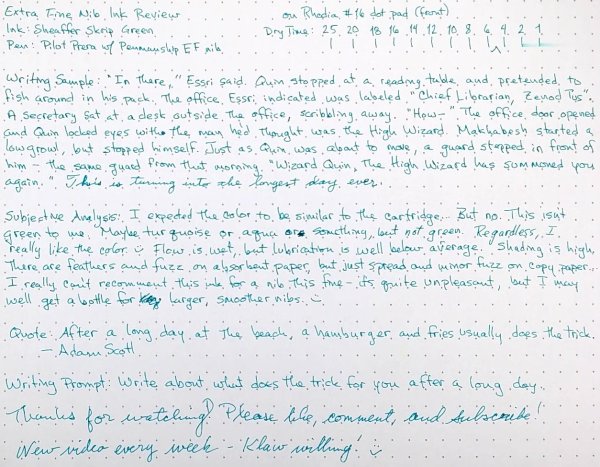 Extra Fine Nib Ink Review on Rhodia #16 dot pad (front)
Ink: Sheaffer Skrip Green Dry Time: 25 20 18 16 14 12 10 8 6 4 2 1
Pen: Pilot Prera w/ Penmanship EF nib
Writing Sample: "In there," Essri said. Quin stopped at a reading table and pretended to
fish around in his pack. The office Essri indicated was labeled "Chief Librarian, Zenod Tys".
A secretary sat at a desk outside the office, scribbling away. "How-" The office door opened
and Quin locked eyes with the man he'd thought was the High Wizard. Makhabesh started a
low growl, but stopped himself. Just as Quin was about to move, a guard stepped in front of
him - the same guard from that morning. "Wizard Quin, the High Wizard has summoned you
again." This is turning into the longest day ever.
Subjective Analysis: I expected the color to be similar to the cartridge. But no. This isn't
green to me. Maybe turquoise or aqua or something, but not green. Regardless, I
really like the color. Flow is wet, but lubrication is well below average. Shading is high.
There are feathers and fuzz on absorbent paper, but just spread and minor fuzz on copy paper.
I really can't recommend this ink for a nib this fine - it's quite unpleasant, but I may
well get a bottle for larger, smoother nibs.
Quote: After a long day at the beach, a hamburger and fries usually does the trick.
- Adam Scott
Writing Prompt: Write about what does the trick for you after a long day.
Thanks for watching! Please like, comment, and subscribe!
New video every week - Klaw willing!